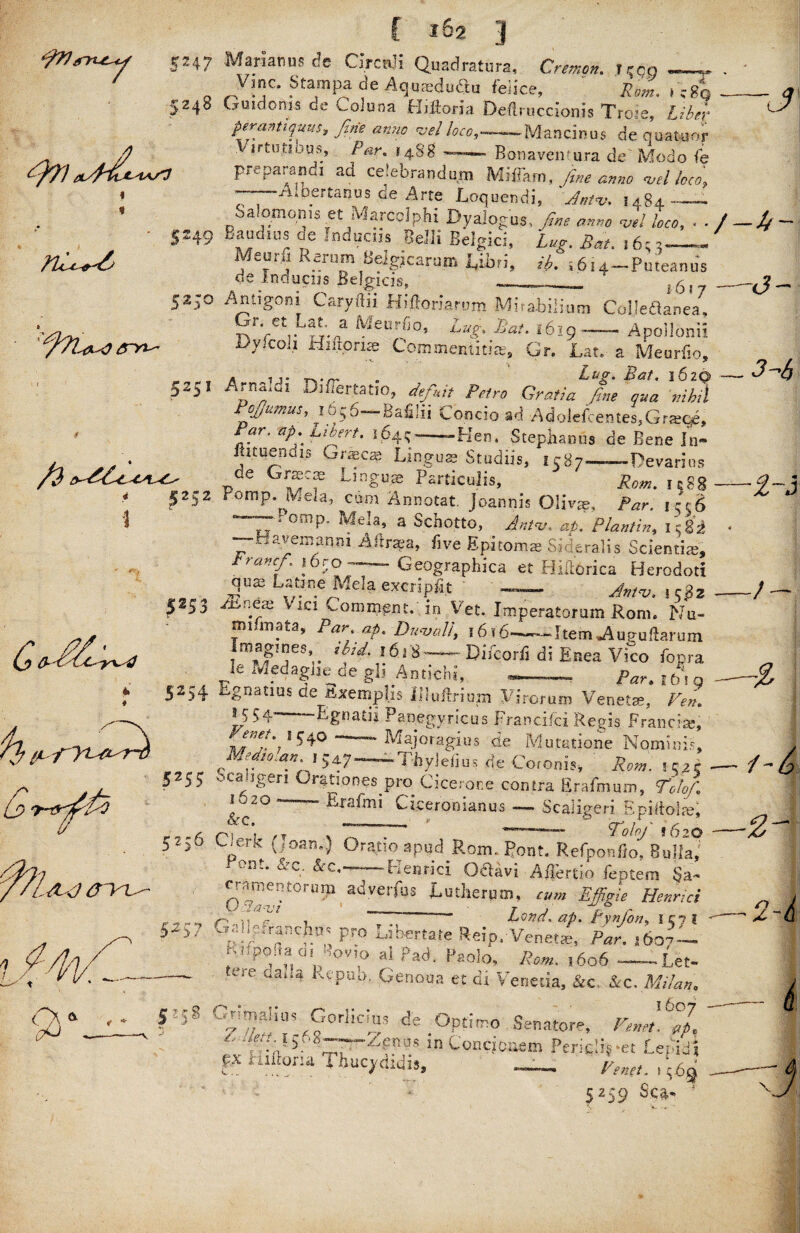 [ 162 ]
Money 5247 Marianus de Circuli Quadratura, Cremon. 1509 ——
Vinc. Stampa de Aquæductu felice, Rom. 1589 —— 9
5248 Guidonis de Coluna Historia Destruccionis Troie, Liber
perantiquus, sine anno vel loco,——Mancinus de quatuor
Virtutibus, Par. 1488 —— Bonaventura de Modo se
preparandi ad celebrandum Missam, sine anno vel loco,
——Albertanus de Arte Loquendi, Antv. 1484 ——
Salomonis et Marcolphi Dyalogus, sine anno vel loco, . . / — 4 —
5249 Baudius de Induciis Belli Belgici, Lug. Bat. 1653——
Meursii Rerum Belgicarum Libri, ib. 1614—Puteanus
de Induciis Belgicis, —— 1617 — 3 —
5250 Antigoni Carystii Historiarum Mirabilium Collectanea,
Gr. et Lat. a Meursio, Lug. Bat. 1619 —— Apollonii
Dyscoli Historiæ Commentitiæ, Gr. Lat. a Meursio,
Lug. Bat. 1620 — 3-6
5251 Arnaldi Dissertatio, defuit Petro Gratia sine qua nihil
Possumus, 1656—Basilii Concio ad Adolescentes, Græcè,
Par. ap. Libert. 1645——Hen. Stephanus de Bene In-
stituendis Græcæ Linguæ Studiis, 1587——Devarius
de Græcæ Linguæ Particulis, Rom. 1588 — 2-3
5252 Pomp. Mela, cum Annotat. Joannis Olivæ, Par. 1556
——Pomp. Mela, a Schotto, Antv. ap. Plantin, 1582
—Havemanni Astræa, sive Epitomæ Sideralis Scientiæ,
Francf. 1650 —— Geographica et Historica Herodoti
quæ Latine Mela excripsit —— Antv. 1582 — 1 —
5253 Æneæ Vici Comment. in Vet. Imperatorum Rom. Nu-
mismata, Par. ap. Duvall, 1616——Item Augustarum
Imagines, ibid. 1618 —— Discorsi di Enea Vico sopra
le Medaglie de gli Antichi, —— Par. 1619 — 2
5254 Egnatius de Exemplis Illustrium Virorum Venetæ, Ven.
1554——Egnatii Panegyricus Francisci Regis Franciæ,
Venet. 1540 —— Majoragius de Mutatione Nominis,
Mediolan. 1547——Thylesius de Coronis, Rom. 1525 — 1-6
5255 Scaligeri Orationes pro Cicerone contra Erasmum, Tolos.
1620 —— Erasmi Ciceronianus — Scaligeri Epistolæ,
&c. —— Tolos 1620 — 2 —
5256 Clerk (Joan.) Oratio apud Rom. Pont. Responsio, Bulla,
Pont. &c. &c.——Henrici Octavi Assertio septem Sa-
cramentorum adversus Lutherum, cum Effigie Henrici
Octavi —— Lond. ap. Pynson, 1571 — 2-6
5257 Gallefranchus pro Libertate Reip. Venetæ, Par. 1607—
Risposta di Bovio al Pad. Paolo, Rom. 1606 ——Let-
tere dalla Repub. Genoua et di Venetia, &c. &c. Milan,
1607 — 6
5258 Grimalius Gorlicius de Optimo Senatore, Venet. ap.
Zilett. 1568——Zenus in Concionem Periclis et Lepidi
ex Historia Thucydidis, —— Venet. 1569 — 9
5259 Sca-